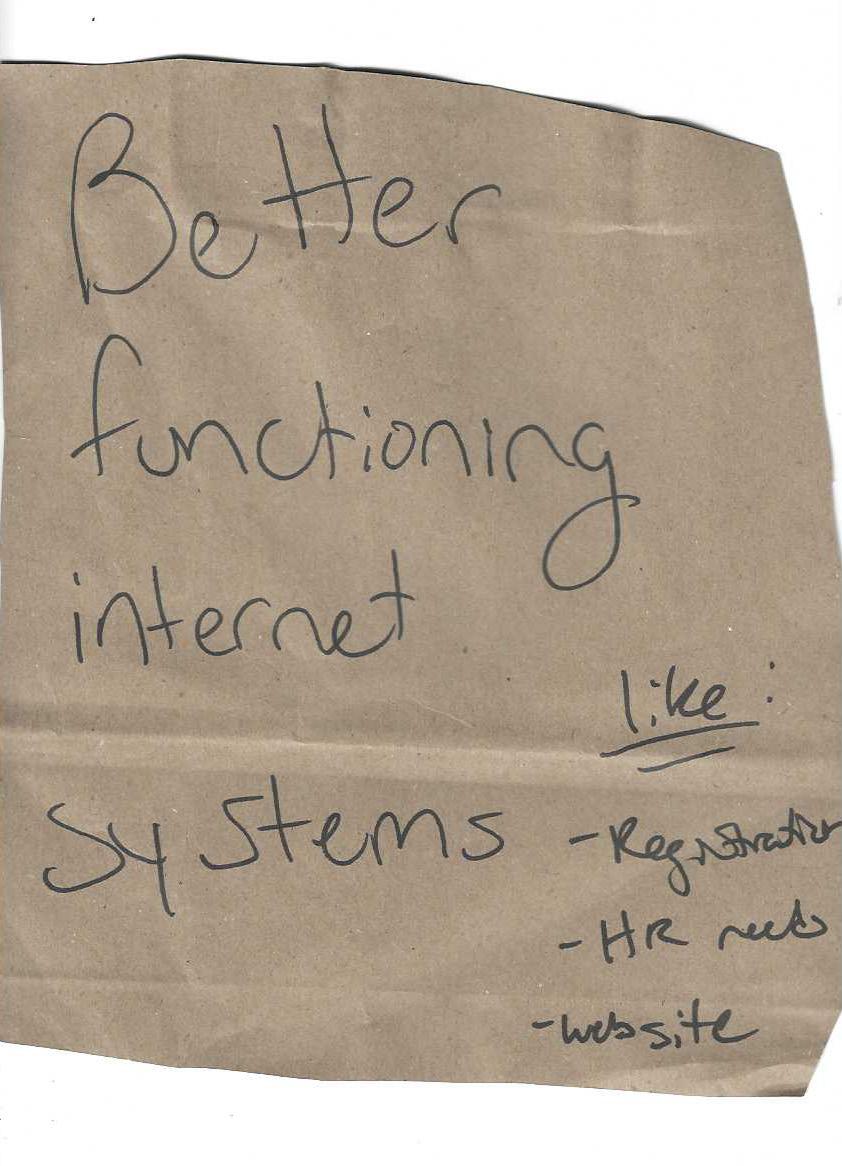 Better
functioning
internet
systems
like:
- Registration
- HR needs
- website